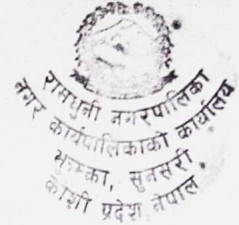 रामधुनी नगरपालिका
नगर कार्यपालिकाको कार्यालय
भुटाहा, सुनसरी
कोशी प्रदेश, नेपाल